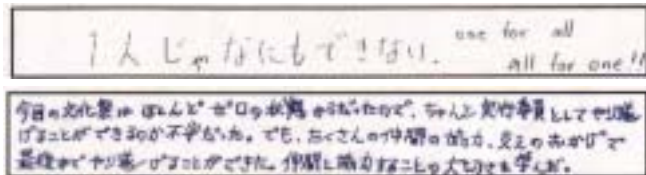 1人じゃなにもできない. one for all
all for one!!
今回の文化祭は ほとんど ゼロの状態からだったので、ちゃんと実行委員としてやり遂
げることができるのか不安だった。でも、たくさんの仲間の協力、支えのおかげで
最後までやり遂げることができた。仲間と協力することの大切さを学んだ。